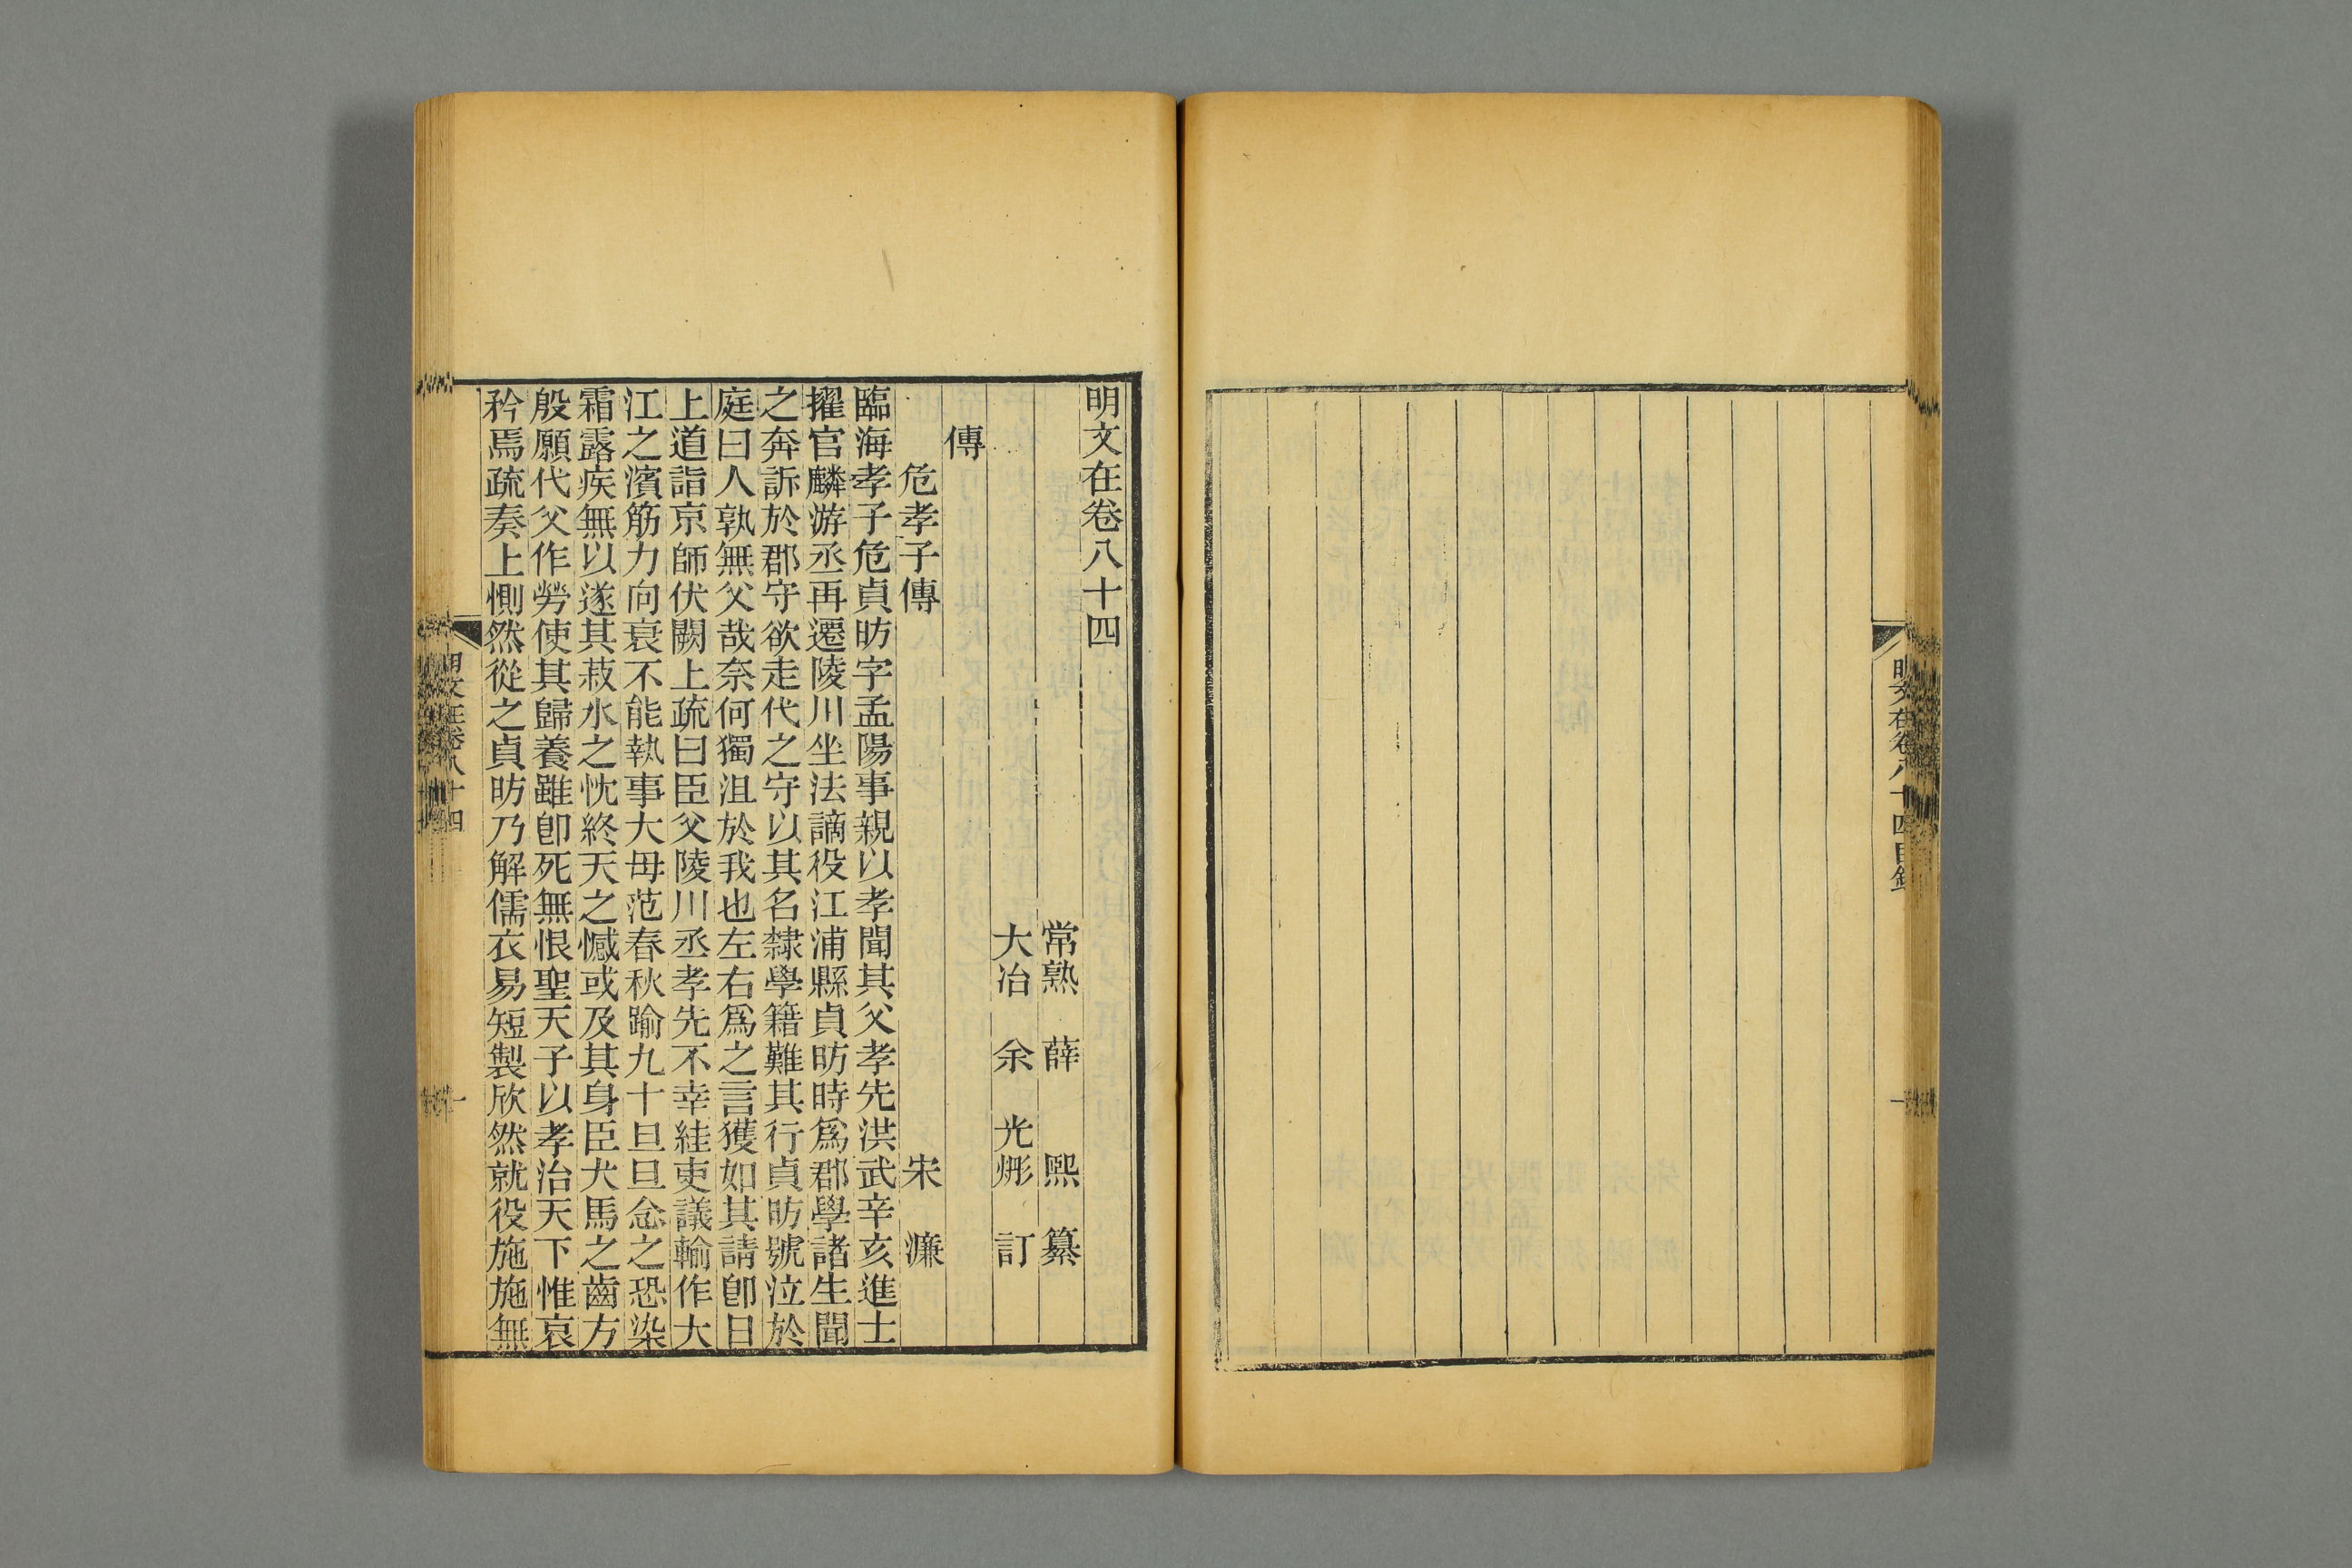 明文在卷八十四目錄
一
明文在卷八十四
常熟 薛 熙 纂
大冶 余 光𤊟 訂
傳
危孝子傳 宋 濂
臨海孝子危貞昉字孟陽事親以孝聞其父孝先洪武辛亥進士
擢官麟游丞再遷陵川坐法謫役江浦縣貞昉時爲郡學諸生聞
之奔訴於郡守欲走代之守以其名隸學籍難其行貞昉號泣於
庭曰人孰無父哉奈何獨沮於我也左右爲之言獲如其請卽日
上道詣京師伏闕上疏曰臣父陵川丞孝先不幸絓吏議輸作大
江之濱筋力向衰不能執事大母范春秋踰九十旦旦念之恐染
霜露疾無以遂其菽水之忱終天之憾或及其身臣犬馬之齒方
殷願代父作勞使其歸養雖卽死無恨聖天子以孝治天下惟哀
矜焉疏奏上惻然從之貞昉乃解儒衣易短製欣然就役施施無
明文在卷八十四
一